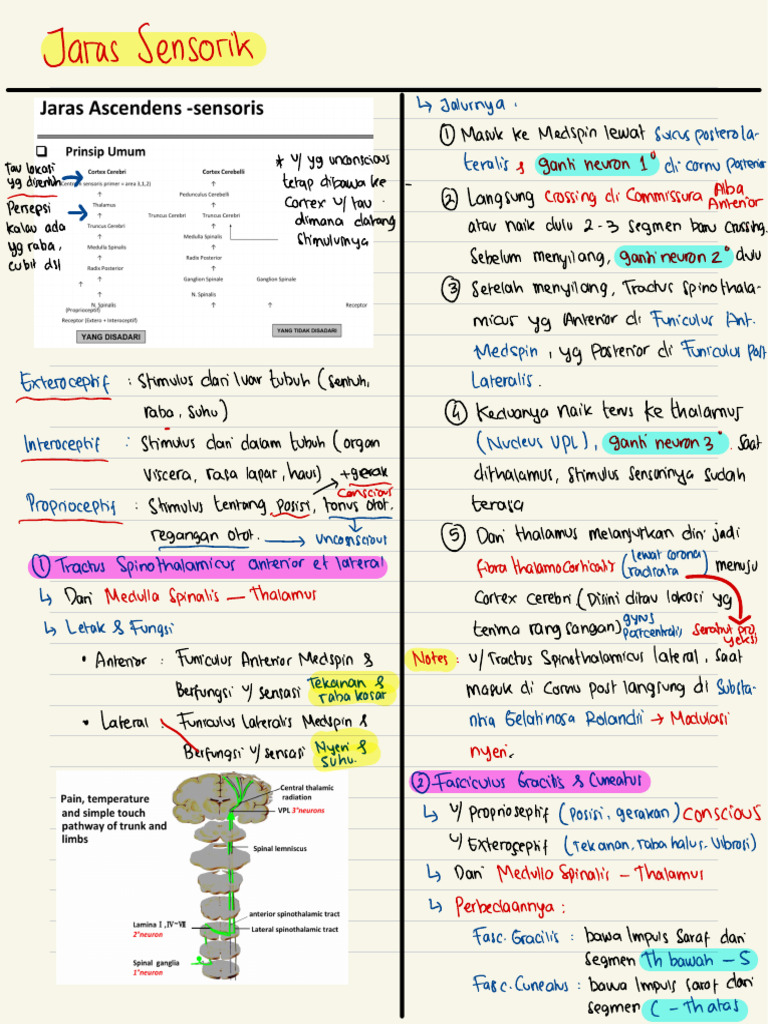 Jaras Sensorik
Jaras Ascendens -sensoris
Prinsip Umum
Tau lokasi
yg disentuh
Persepsi
kalau ada
yg raba,
cubit dll
Cortex Cerebri
sensoris primer = area 3,1,2)
↑
Thalamus
↑
Truncus Cerebri
↑
Medulla Spinalis
↑
Radix Posterior
↑
Ganglion Spinale
↑
N. Spinalis
(Proprioceptif)
Receptor (Extero + Interoceptif)
YANG DISADARI
Cortex Cerebelli
↑
Pedunculus Cerebelli
↑
Truncus Cerebri Truncus Cerebri
↑
Medulla Spinalis
↑
Radix Posterior
↑
Ganglion Spinale
N. Spinalis
↑
Ganglion Spinale
↑
Receptor
YANG TIDAK DISADARI
* u/ yg unconscious
tetap dibawa ke
Cortex u/ tau
dimana datang
stimulusnya
Exteroceptif : Stimulus dari luar tubuh (sentuh,
raba, suhu)
Interoceptif : Stimulus dari dalam tubuh (organ
viscera, rasa lapar, haus)
+gerak
conscious
Proprioceptif : Stimulus tentang posisi, tonus otot.
regangan otot. → unconscious
① Tractus Spinothalamicus anterior et lateral
↳ Dari Medulla Spinalis — Thalamus
↳ Letak & Fungsi
• Anterior : Funiculus Anterior Medspin &
Berfungsi u/ sensasi Tekanan &
raba kasar
• Lateral Funiculus Lateralis Medspin &
Berfungsi u/ sensasi Nyeri &
suhu.
Pain, temperature
and simple touch
pathway of trunk and
limbs
Central thalamic
radiation
VPL 3°neurons
Spinal lemniscus
anterior spinothalamic tract
Lateral spinothalamic tract
Lamina Ⅰ,Ⅳ~Ⅶ
2°neuron
Spinal ganglia
1°neuron
↳ Jalurnya :
① Masuk ke Medspin lewat Sucus posterola-
teralis & ganti neuron 1° di cornu posterior
② Langsung crossing di Commissura Alba
Anterior
atau naik dulu 2-3 segmen baru crossing.
Sebelum menyilang, ganti neuron 2° dulu
③ Setelah menyilang, Tractus spinothala-
micus yg Anterior di Funiculus Ant.
Medspin, yg Posterior di Funiculus Post
Lateralis.
④ Keduanya naik terus ke thalamus
(Nucleus VPL), ganti neuron 3°. Saat
dithalamus, stimulus sensorinya sudah
terasa
⑤ Dari thalamus melanjutkan diri jadi
fibra thalamoCorticalis (lewat corona
radiata) menuju
Cortex cerebri (Disini ditau lokasi yg
terima rangsangan) gyrus
Postcentralis
Serabut pro
yeksi
Notes : u/ Tractus Spinothalamicus lateral, saat
masuk di Cornu post langsung di Substa-
ntia Gelatinosa Rolandii → Modulasi
nyeri.
② Fasciculus Gracilis & Cuneatus
↳ u/ Proprioseptif (Posisi, gerakan) Conscious
u/ Exteroseptif (Tekanan, raba halus, Vibrasi)
↳ Dari Medulla Spinalis – Thalamus
↳ Perbedaannya :
Fasc. Gracilis : bawa Impuls Saraf dari
segmen Th bawah – S
Fasc. Cuneatus : bawa Impuls saraf dari
segmen C – Th atas